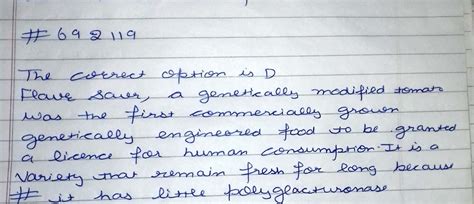 # 69 2 119
The correct option is D
Flavr Savr, a genetically modified tomato
was the first commercially grown
genetically engineered food to be granted
a licence for human consumption. It is a
variety that remain fresh for long because
# it has little polyglacturonase